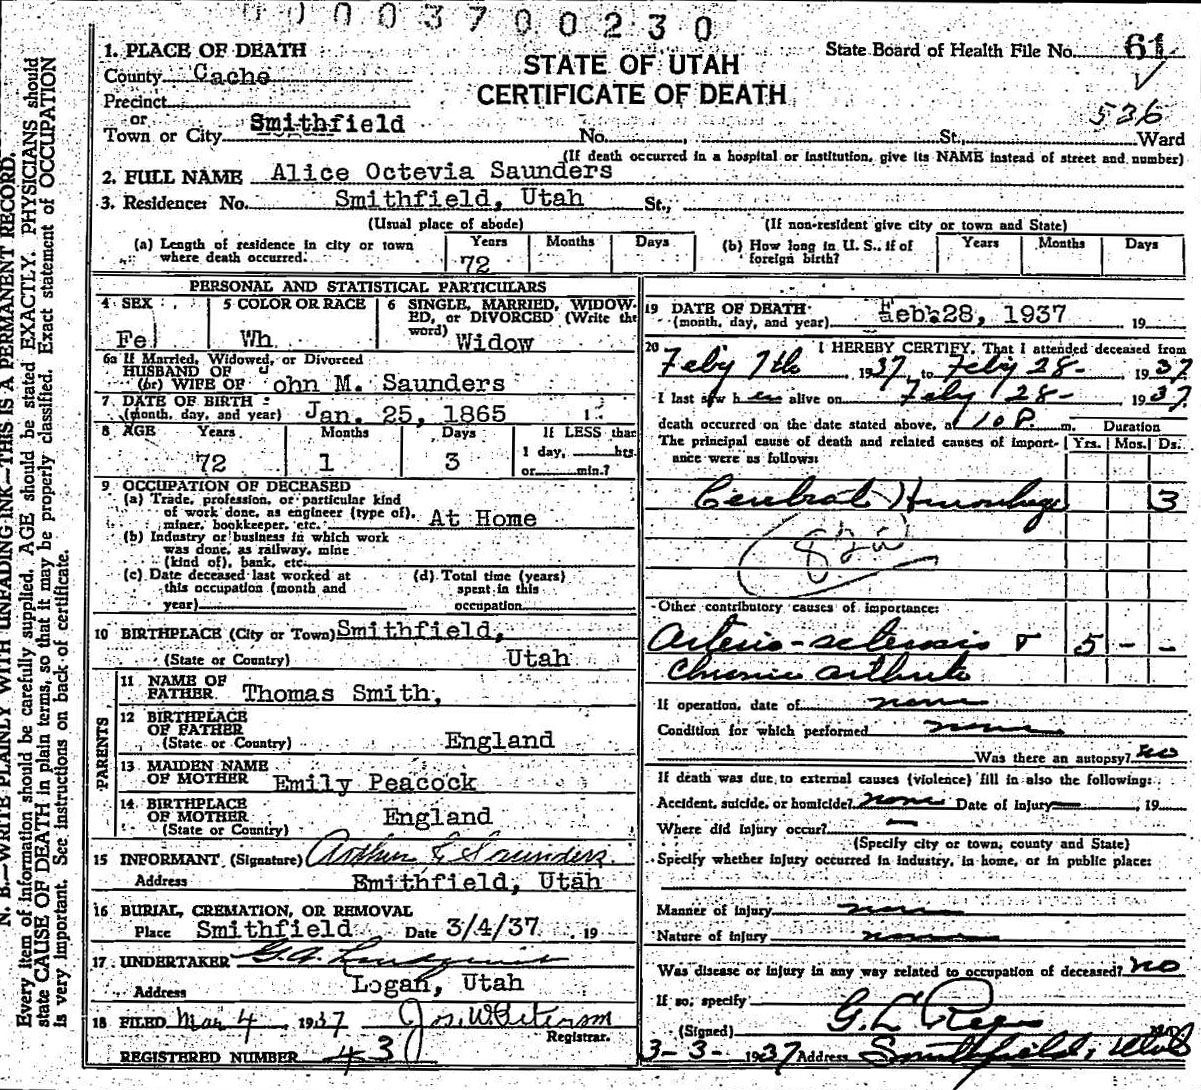 00003700230
1. PLACE OF DEATH
County Cache
Precinct
or
Town or City Smithfield No. St. Ward
STATE OF UTAH
CERTIFICATE OF DEATH
State Board of Health File No. 61
536
(If death occurred in a hospital or institution, give its NAME instead of street and number)
2. FULL NAME Alice Octevia Saunders
3. Residence: No. Smithfield, Utah St.,
(Usual place of abode) (If non-resident give city or town and State)
(a) Length of residence in city or town where death occurred. Years 72 Months Days
(b) How long in U. S., if of foreign birth? Years Months Days
PERSONAL AND STATISTICAL PARTICULARS
4 SEX Fe
5 COLOR OR RACE Wh
6 SINGLE, MARRIED, WIDOWED, or DIVORCED (Write the word) Widow
6a If Married, Widowed, or Divorced
HUSBAND OF
(or) WIFE OF John M. Saunders
7 DATE OF BIRTH
(month, day, and year) Jan. 25, 1865 1
8 AGE Years 72 Months 1 Days 3
If LESS than
1 day, hrs.
or min.?
9 OCCUPATION OF DECEASED
(a) Trade, profession, or particular kind
of work done, as engineer (type of),
miner, bookkeeper, etc. At Home
(b) Industry or business in which work
was done, as railway, mine
(kind of), bank, etc.
(c) Date deceased last worked at
this occupation (month and
year)
(d) Total time (years)
spent in this
occupation
10 BIRTHPLACE (City or Town) Smithfield,
(State or Country) Utah
PARENTS
11 NAME OF
FATHER Thomas Smith,
12 BIRTHPLACE
OF FATHER
(State or Country) England
13 MAIDEN NAME
OF MOTHER Emily Peacock
14 BIRTHPLACE
OF MOTHER England
(State or Country)
15 INFORMANT (Signature) Arthur E Saunders
Address Smithfield, Utah
16 BURIAL, CREMATION, OR REMOVAL
Place Smithfield Date 3/4/37 19
17 UNDERTAKER G.A. Lundquist
Address Logan, Utah
18 FILED Mar 4 1937 Jos. W. Peterson
Registrar.
REGISTERED NUMBER 43
19 DATE OF DEATH
(month, day, and year) Feb. 28, 1937 19
20 I HEREBY CERTIFY, That I attended deceased from
Feby 7th 1937, to Feby 28- 1937
I last saw her alive on Feby 28- 1937
death occurred on the date stated above, at 10 P. m. Duration
The principal cause of death and related causes of importance were as follows: Yrs. Mos. Ds.
Cerebral Hemorhage 3
Other contributory causes of importance:
Arterio-sclerosis & 5 - -
Chronic arthritis
If operation, date of none
Condition for which performed none
Was there an autopsy? no
If death was due to external causes (violence) fill in also the following:
Accident, suicide, or homicide? none Date of injury , 19
Where did injury occur?
(Specify city or town, county and State)
Specify whether injury occurred in industry, in home, or in public place:
Manner of injury none
Nature of injury none
Was disease or injury in any way related to occupation of deceased? no
If so, specify
(Signed) G. L. Rees
3-3- 1937 Address Smithfield, Utah
N. B.—WRITE PLAINLY WITH UNFADING INK—THIS IS A PERMANENT RECORD.
Every item of information should be carefully supplied. AGE should be stated EXACTLY. PHYSICIANS should
state CAUSE OF DEATH in plain terms, so that it may be properly classified. Exact statement of OCCUPATION
is very important. See instructions on back of certificate.